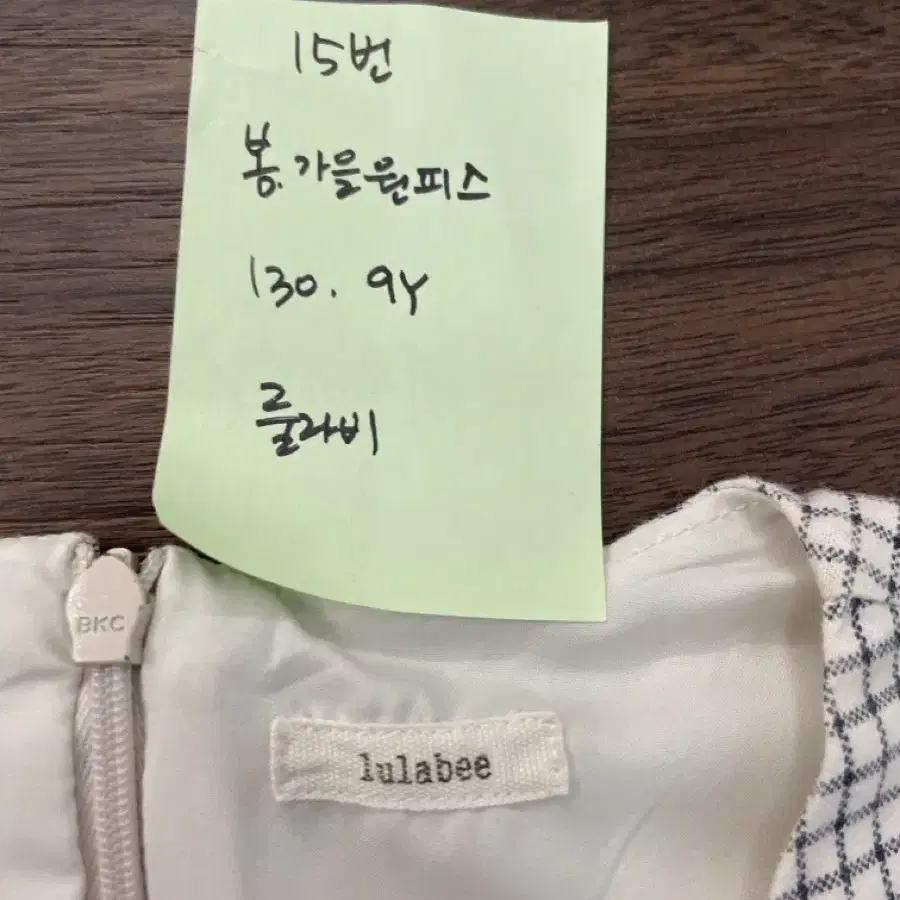 15번
봄.가을원피스
130. 9Y
룰라비
BKC
lulabee